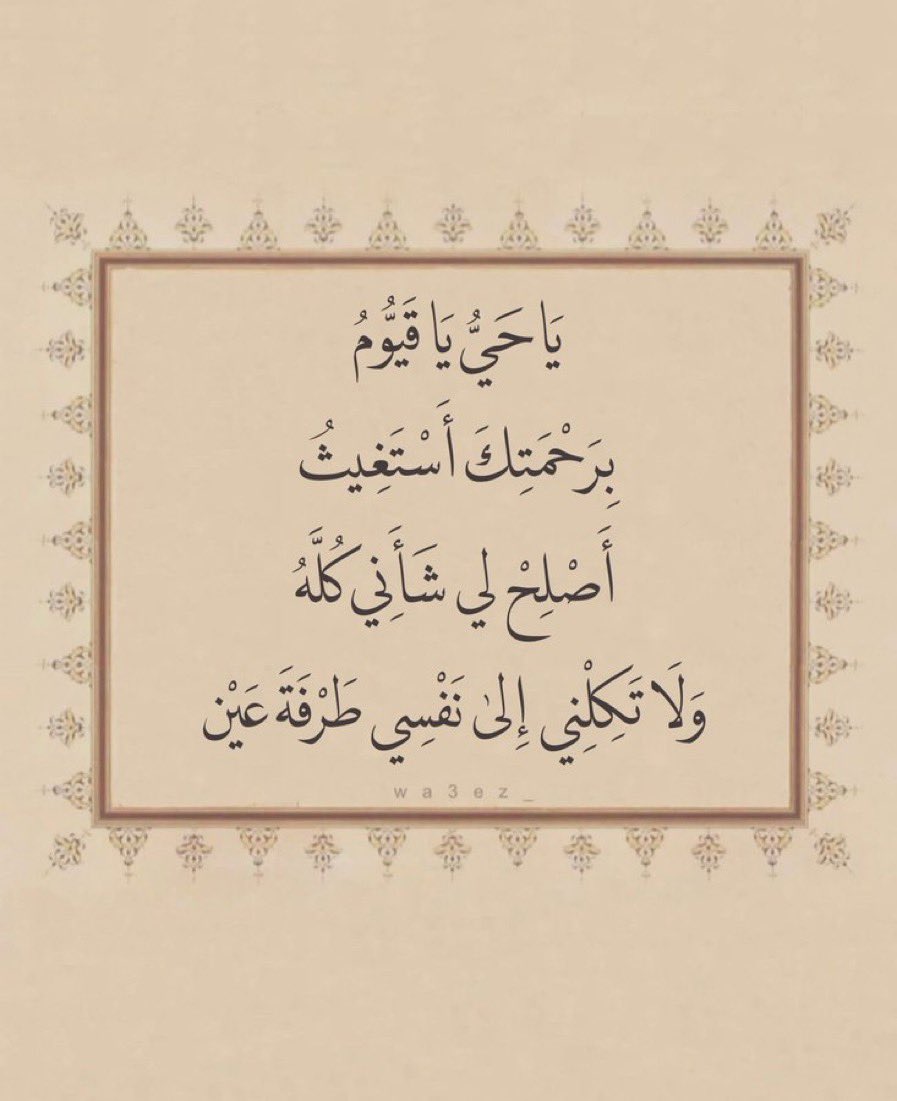 يَا حَيُّ يَا قَيُّومُ
بِرَحْمَتِكَ أَسْتَغِيثُ
أَصْلِحْ لِي شَأَنِي كُلَّهُ
وَلَا تَكِلْنِي إِلىٰ نَفْسِي طَرْفَةَ عَيْن
wa3ez_